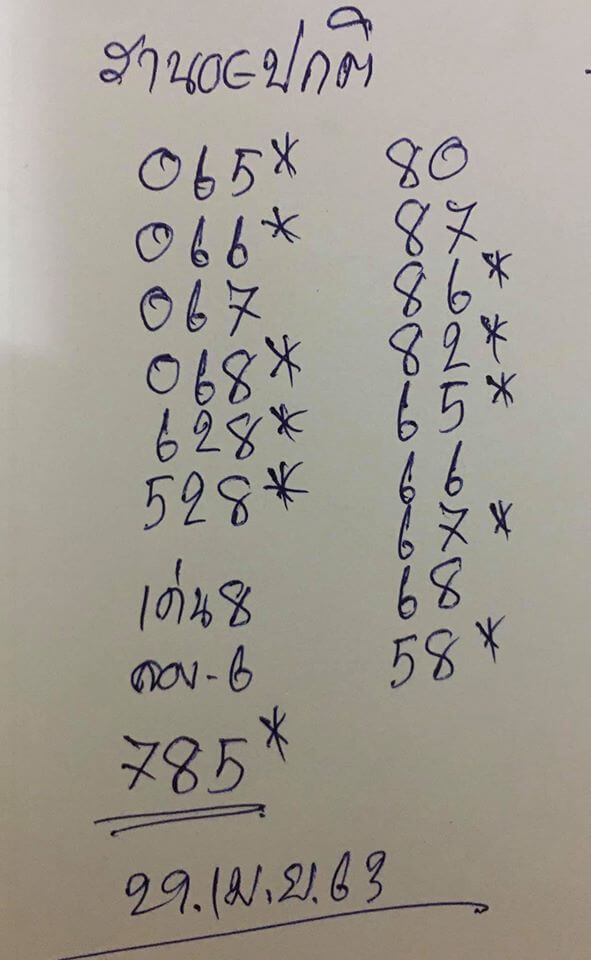 ฮานอยปกติ
065* 80
066* 87
067 86*
068* 82*
628* 65*
528* 66
67*
เด่น8 68
รอง-6 58*
785*
29.เม.ย.63